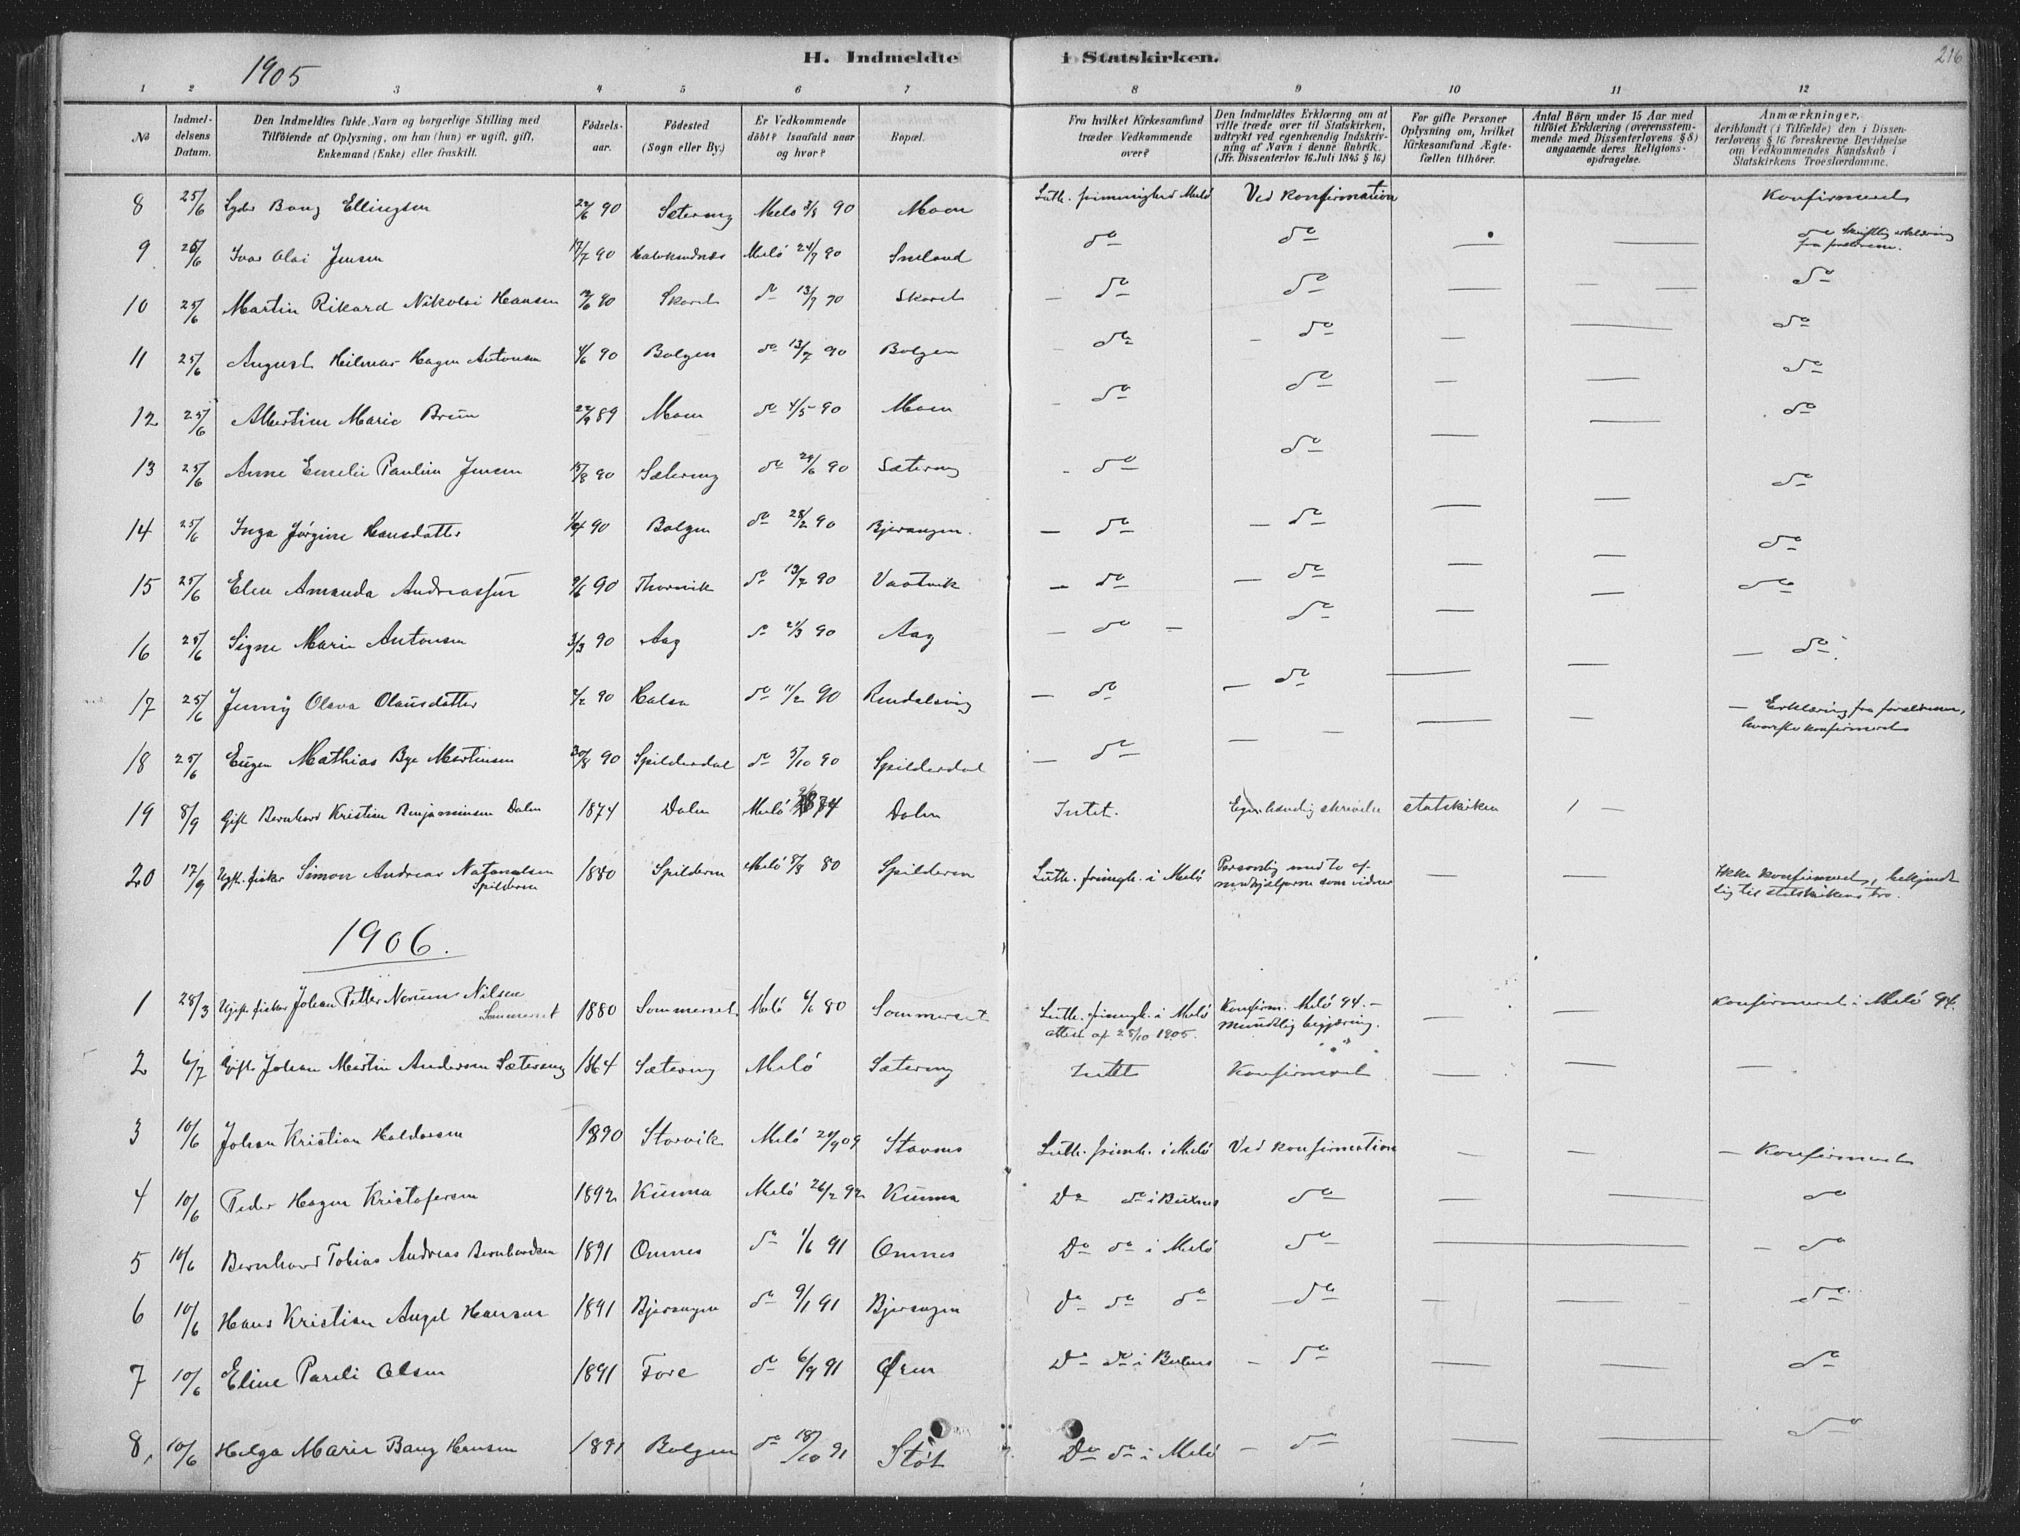 1905
H. Indmeldte i Statskirken.
216
1 2 3 4 5 6 7 8 9 10 11 12
No
Indmel-
delsens
Datum.
Den Indmeldtes fulde Navn og borgerlige Stilling med
Tilføiende af Oplysning, om han (hun) er ugift, gift,
Enkemand (Enke) eller fraskilt.
Fødsels-
aar.
Fødested
(Sogn eller By.)
Er Vedkommende
døbt? Isaafald naar
og hvor?
Bopæl.
Fra hvilket Kirkesamfund
træder Vedkommende
over?
Den Indmeldtes Erklæring om at
ville træde over til Statskirken,
udtrykt ved egenhændig Indskriv-
ning af Navn i denne Rubrik.
(Jfr. Dissenterlov 16 Juli 1845 § 16.)
For gifte Personer
Oplysning om, hvilket
Kirkesamfund Ægte-
fællen tilhører.
Antal Børn under 15 Aar med
tilføiet Erklæring (overensstem-
mende med Dissenterlovens § 8)
angaaende deres Religions-
opdragelse.
Anmærkninger,
deriblandt (i Tilfælde) den i Dissen-
terlovens § 16 foreskrevne Bevidnelse
om Vedkommendes Kundskab i
Statskirkens Troeslærdomme.
8 25/6 Bang Ellingsen 90 Sætering Melø 3/8 90 Moen Luth. frimenighed Melø Ved konfirmation Konfirmeret
9 25/6 Ivar Olai Jensen 17/7 90 Melø 24/9 90 Smeland do do — — do Skriftlig erklæring
fra forældrene.
10 25/6 Martin Rikard Nikolai Hansen 90 Skavet do 13/7 90 Skavet — do do — — — do
11 25/6 August Hilmar Hagen Antonsen 4/6 90 Bolgen do 13/7 90 Bolgen — do — do — — do
12 25/6 Albertine Marie Brun 89 Moen do 4/5 90 Moen — do do — — do
13 25/6 Anne Emelie Pauline Jensen 90 Sætering do 29/6 90 Sætering — do do — — do
14 25/6 Inga Jørgine Hansdatter 90 Bolgen do 90 Bjerangen. — do — do — — do
15 25/6 Elen Amanda Andreassen 90 Thorvik do 13/7 90 Vaatvik — do — do — — do
16 25/6 Signe Marie Antonsen 3/3 90 Aag do 90 Aag — do — do — — do
17 25/6 Jenny Olava Olausdatter 90 Halsa do 11/2 90 Rendalsvig — do — do — — — do
18 25/6 Eugen Mathias Bye Martinsen 30/8 90 Spilderdal do 5/10 90 Spilderdal — do — — — — — Erklæring fra forældrene,
hvorefter konfirmeret
19 8/9 Gift Bernhard Kristian Benjaminsen Dalen 1874 Dalen Melø 74 Dalen Intet. Egenhændig skrivelse statskirken 1 —
20 17/9 Ugift. fisker Simon Andreas Natanalsen
Spilderen 1880 Spilderen Melø 8/8 80 Spilderen Luth. frimgh. i Melø Personlig møde af
medhjælperne som vidner — — Ikke konfirmeret, bekjendt
lig til statskirkens tro.
1906.
1 28/3 Ugift fisker Johan Petter Norum Nilsen
Sommerset 1880 Sommerset Melø 6/6 80 Sommerset Luth. frimgh. i Melø
attest af 28/10 1905. Konfirm. Melø 94. —
mundtlig begjæring. — — Konfirmeret i Melø 94.
2 6/7 Gift Johan Martin Andersen Sætering 1864 Sætering Melø Sætering Intet Konfirmeret — — —
3 10/6 Johan Kristian Haldorsen 1890 Storvik Melø Stavnes Luth. frimh. i Melø Ved konfirmation — — — Konfirmeret
4 10/6 Peder Hagen Kristofersen 1892 Kunna Melø 26/2 92 Kunna Do do i do — — do
5 10/6 Bernhard Tobias Andreas Bernhardsen 1891 Omnes do 1/6 91 Omnes Do do i Melø do — — do
6 10/6 Hans Kristian Angel Hansen 1891 Bjerangen do 9/1 91 Bjerangen do do do — do — — do
7 10/6 Eline Pareli Olsen 1891 Fore do 6/9 91 Ørnn Do do i — do — — do
8, 10/6 Helga Marie Bang Hansen 1891 Bolgen do 18/10 91 Støt Do do i Melø — do — — do